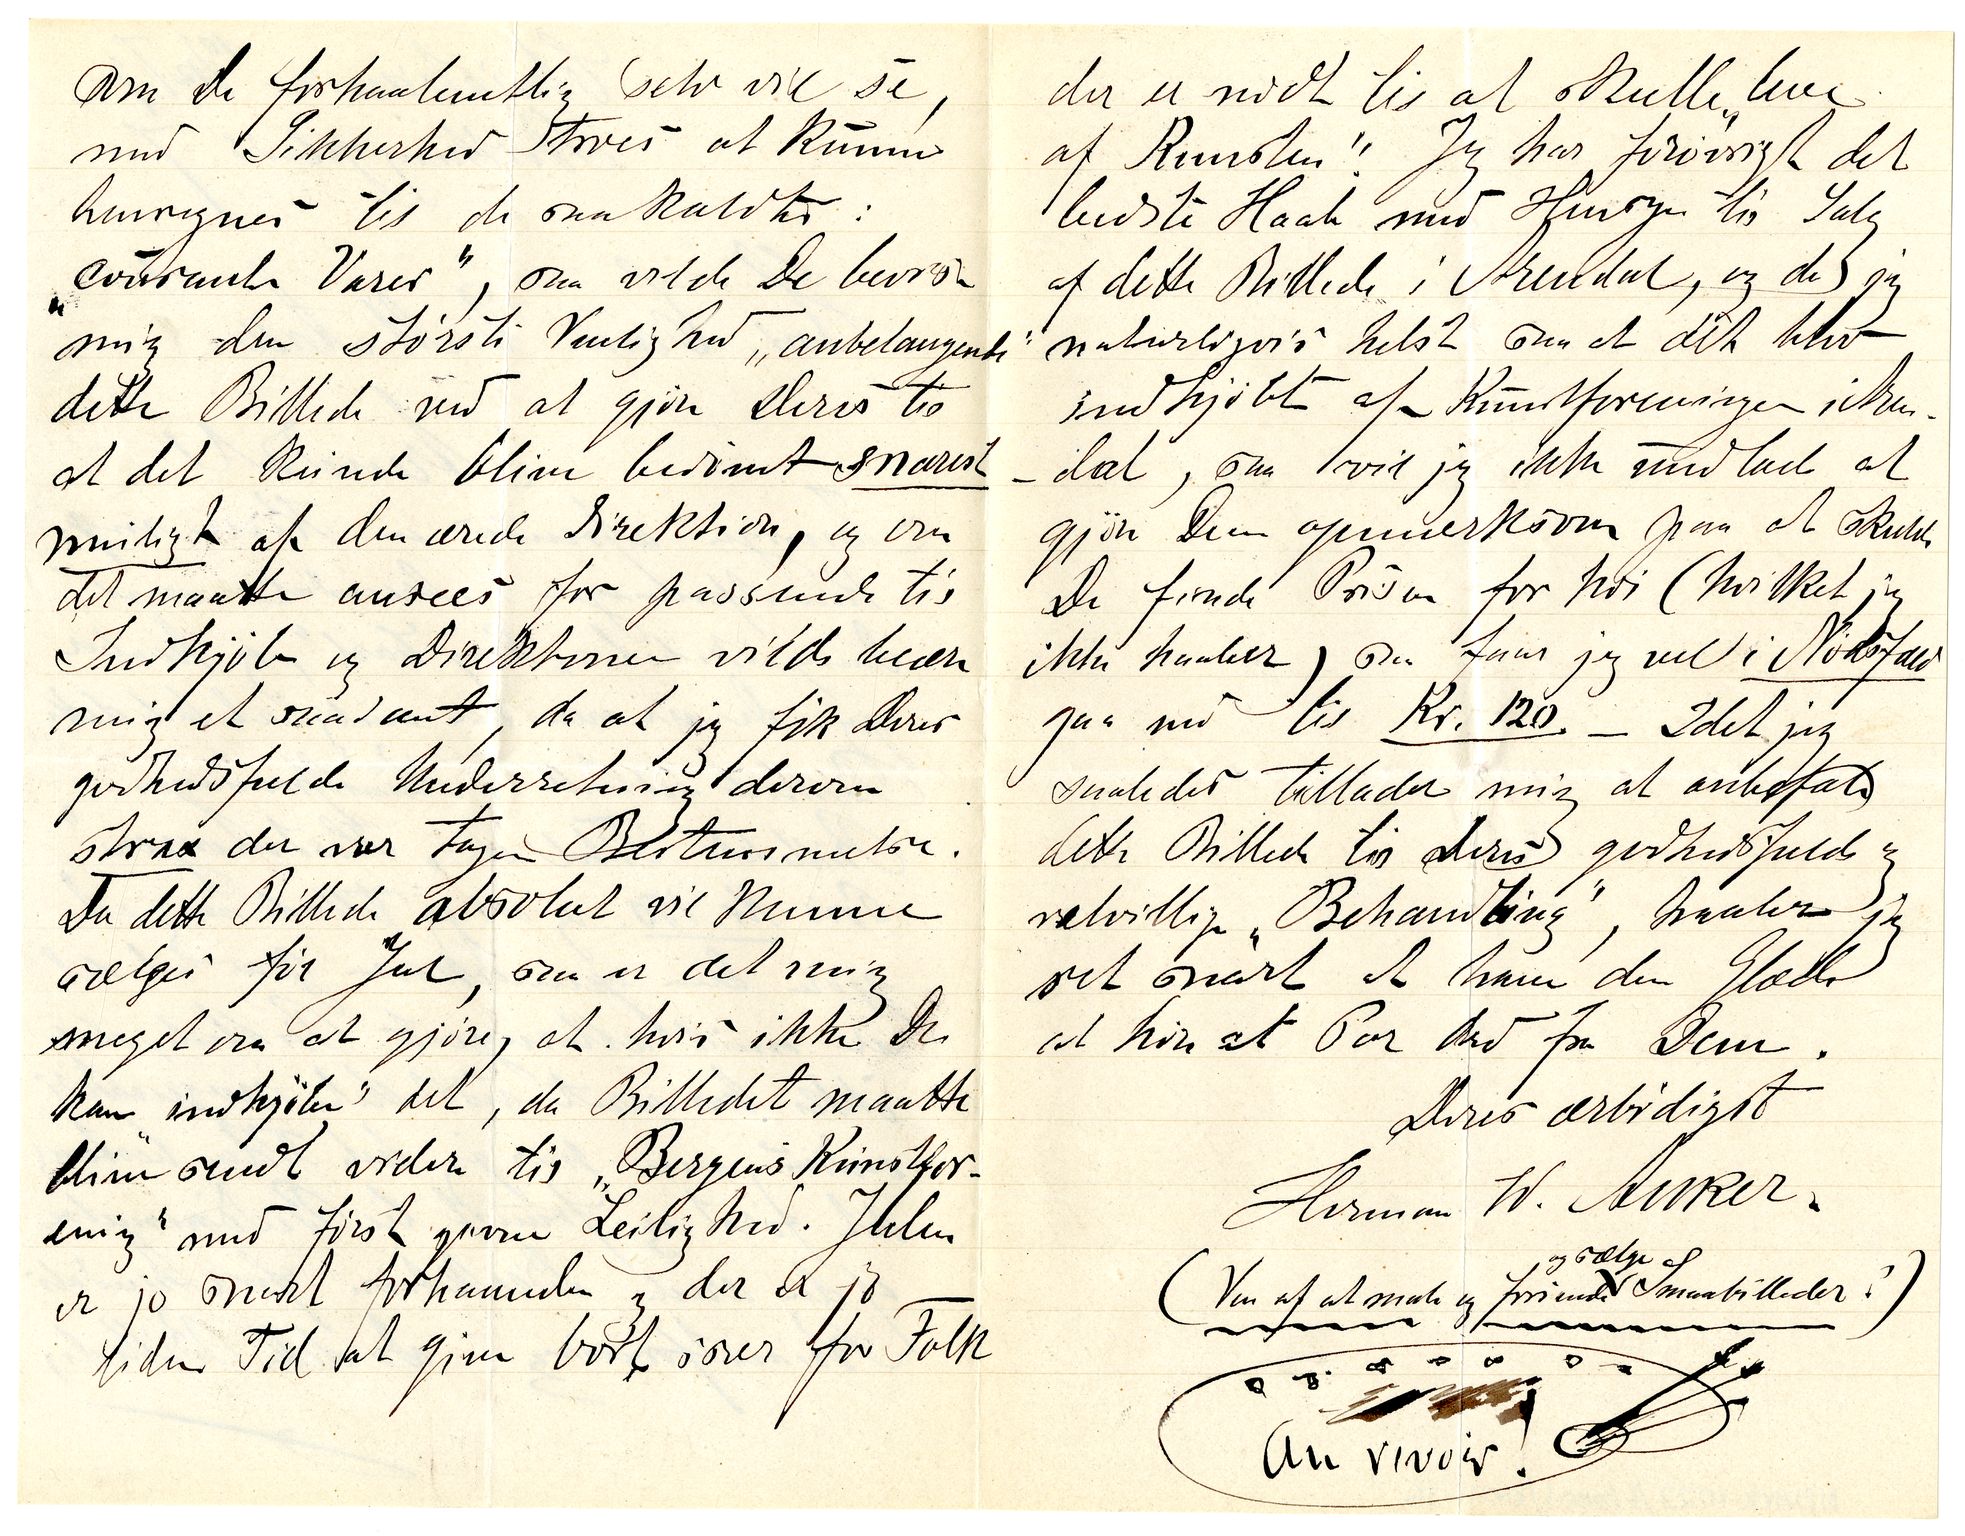 som De forhaabentlig selv vil se,
med Sikkerhed troes at kunne
henregnes til de saakaldte:
"courante Varer", saa vilde De bevise
mig den störste Venlighed "anbelangende"
dette Billede ved at gjöre Deres til
at det kunde blive bedömt snarest
muligt af den ærede Direktion, og om
det maatte ansees for passende til
Indkjöb og Direktionen vilde
mig et saadant, da at jeg fik Deres
godhedsfulde Underretning derom
strax der var tagen Bestemmelse.
Da dette Billede absolut vil kunne
sælges för Jul, saa er det mig
meget om at gjöre, at hvis ikke De
kan "indkjöbe" det, da Billedet maatte
blive sendt videre til "Bergens Kunstfor-
ening" med förste givne Leilighed. Julen
er jo snart forhaanden og der er jo
liden Tid at give bort over for Folk
der er nödt til at skulle "leve
af Kunsten"! Jeg har forövrigt det
bedste Haab med Hensyn til Salg
af dette Billede i Arendal, og da jeg
naturligvis helst saa at det blev
indkjöbt af Kunstforeningen i Aren-
dal, saa vil jeg ikke undlade at
gjöre Dem opmerksom paa at skulde
De finde Prisen for höi (hvilket jeg
ikke haaber) saa faar jeg vel i Nödsfald
gaa ned til Kr. 120. – Idet jeg
saaledes tillader mig at anbefale
dette Billede til Deres godhedsfulde og
velvillige "Behandling", haaber jeg
ret snart at have den Glæde
at höre et Par Ord fra Dem.
Deres ærbödigst
Herman W. Anker.
og sælge
(Ven af at male og Smaabilleder!)
Au revoir!